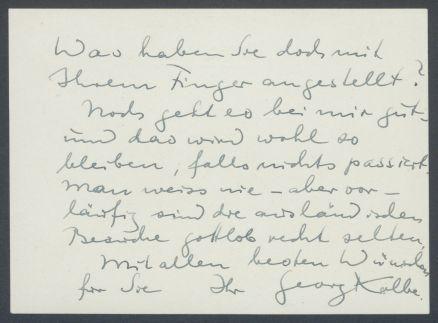 Was haben Sie doch mit
Ihrem Finger angestellt?
Noch geht es bei mir gut –
und das wird wohl so
bleiben, falls nichts passiert.
Man weiss nie – aber vor-
läufig sind die ausländischen
Besuche gottlob recht selten.
Mit allen besten Wünschen
für Sie Ihr Georg Kolbe.